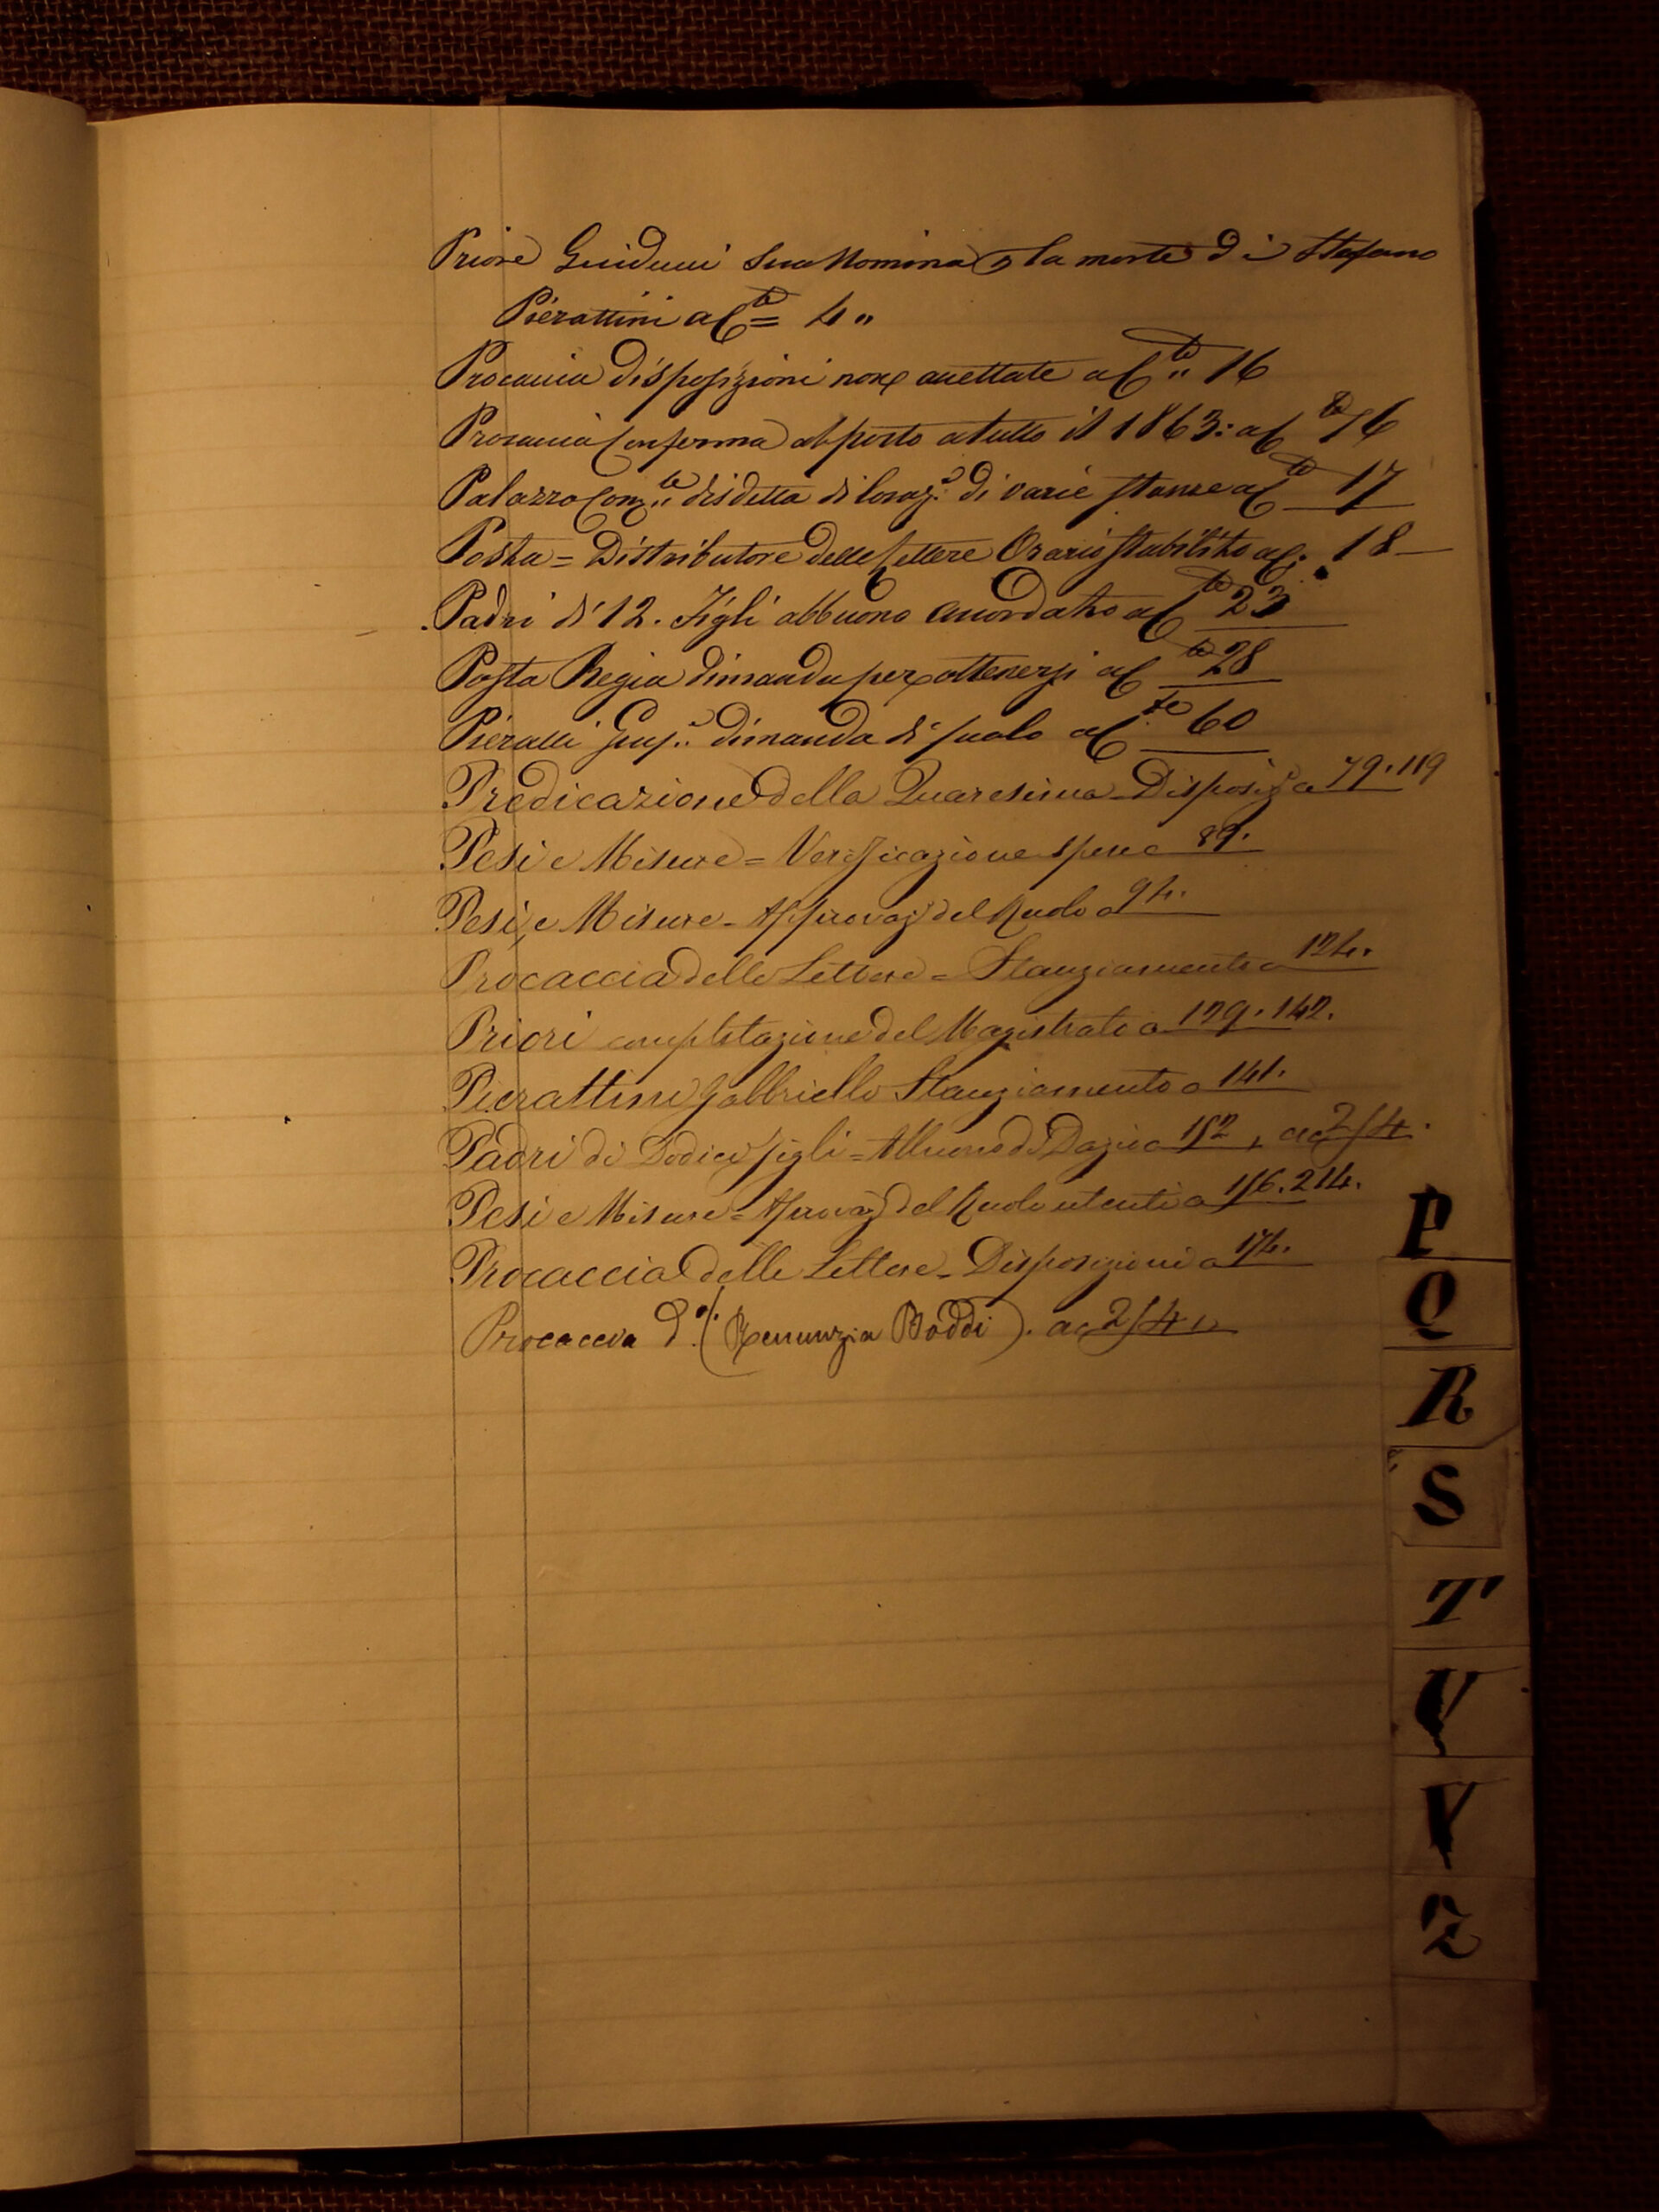 Priore Guiducci Sua Nomina p la morte di Stefano
Pierattini a Cte = 4 "
Procaccia disposizioni non accettate a Cte " 16
Procaccia Conferma al posto a tutto il 1863: a Cte 76
Palazzo Comte " disdetta di locaze di varie stanze a Cte 17
Posta = Distributore delle Lettere Orario stabilito a C. 18 —
Padri di 12. Figli abbuono accordato a Cte 23
Posta Regia dimanda per ottenersi a Cte 28
Pieratti Giuse dimanda di suolo a Cte 60
Predicazione della Quaresima - Disposize a 79. 119
Pesi e Misure = Verificazione spese a 89.
Pesi e Misure - Approvaze del Ruolo a 94.
Procaccia delle Lettere = Stanziamento a 124.
Priori completazione del Magistrato a 129. 142.
Pierattini Gabbriello Stanziamento a 141.
Padri di Dodici figli = Abbuono di Dazio a 152, a c 254.
Pesi e Misure = Approvaze del Ruolo utenti a 156. 214.
Procaccia delle Lettere - Disposizioni a 174.
Procaccia do. (Renunzia Boddi). a c 254
P
Q
R
S
T
V
Z